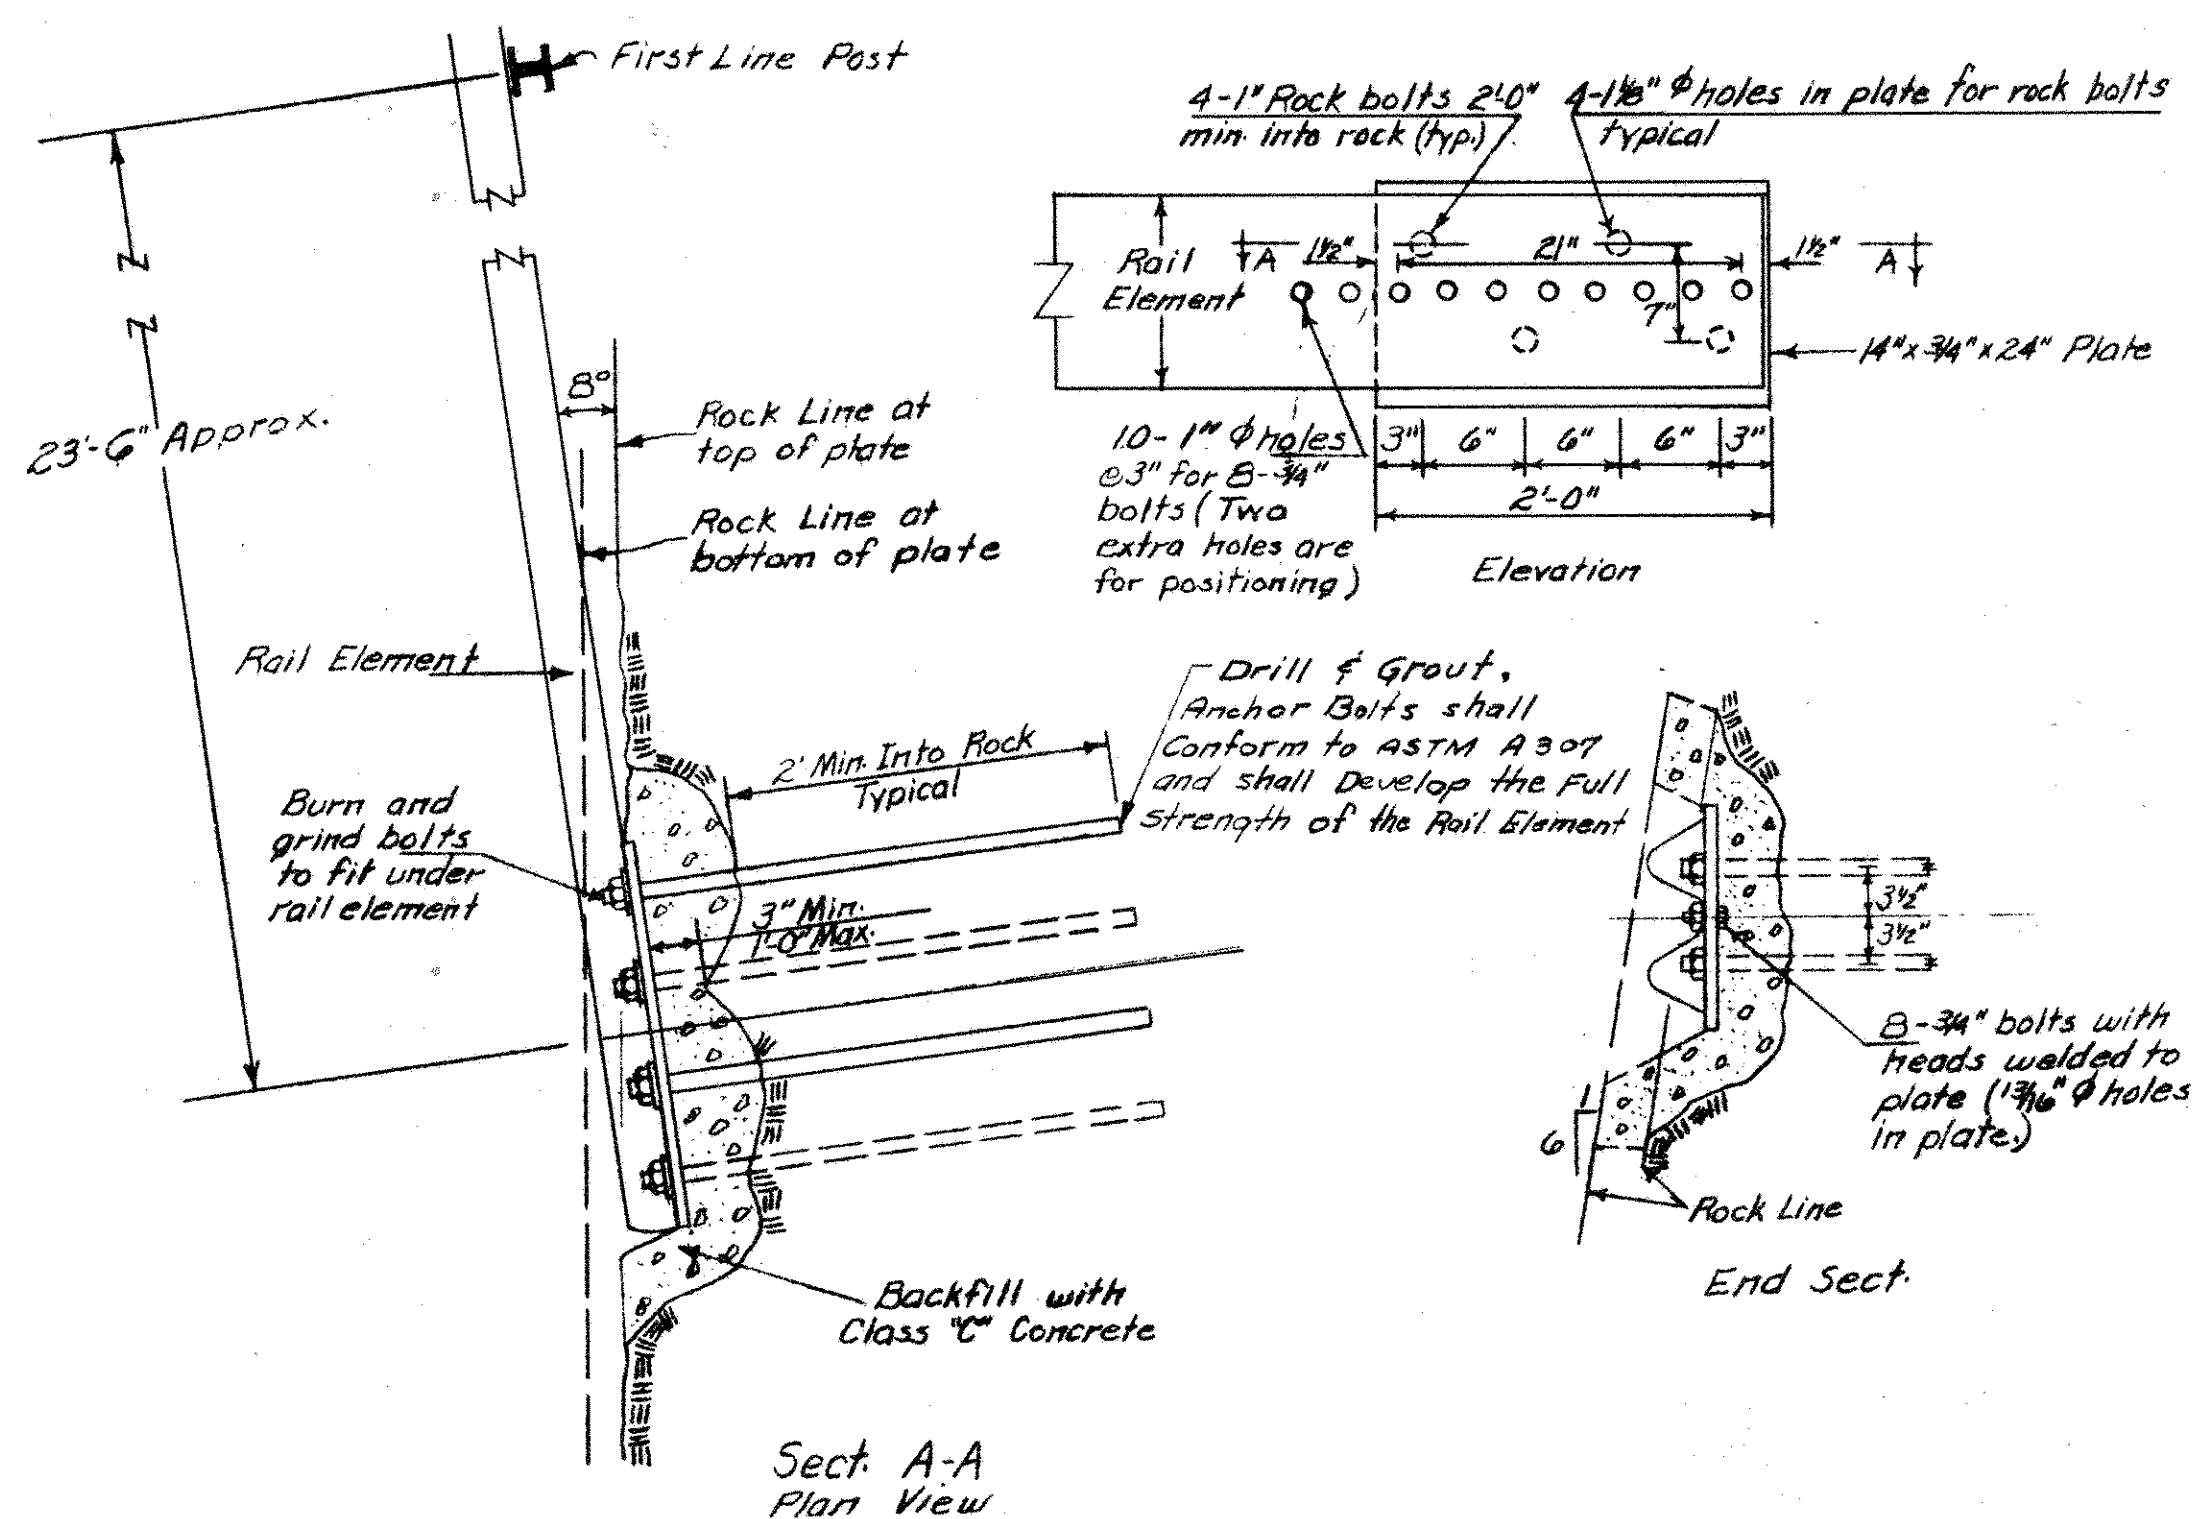 First Line Post
4-1" Rock bolts 2'-0"
min. into rock (typ.)
4-1⅛" Φ holes in plate for rock bolts
typical
Rail
Element
A
1½"
21"
1½"
A
7"
14" x ¾" x 24" Plate
10-1" Φ holes
@ 3" for 8-¾"
bolts (Two
extra holes are
for positioning)
3" 6" 6" 6" 3"
2'-0"
Elevation
8°
Rock Line at
top of plate
23'-6" Approx.
Rock Line at
bottom of plate
Rail Element
Drill & Grout,
Anchor Bolts shall
Conform to ASTM A307
and shall Develop the Full
Strength of the Rail Element
2' Min. Into Rock
Typical
Burn and
grind bolts
to fit under
rail element
3" Min.
1'-0" Max.
3½"
3½"
8-¾" bolts with
heads welded to
plate (13/16" Φ holes
in plate.)
1
6
Rock Line
End Sect.
Backfill with
Class "C" Concrete
Sect. A-A
Plan View